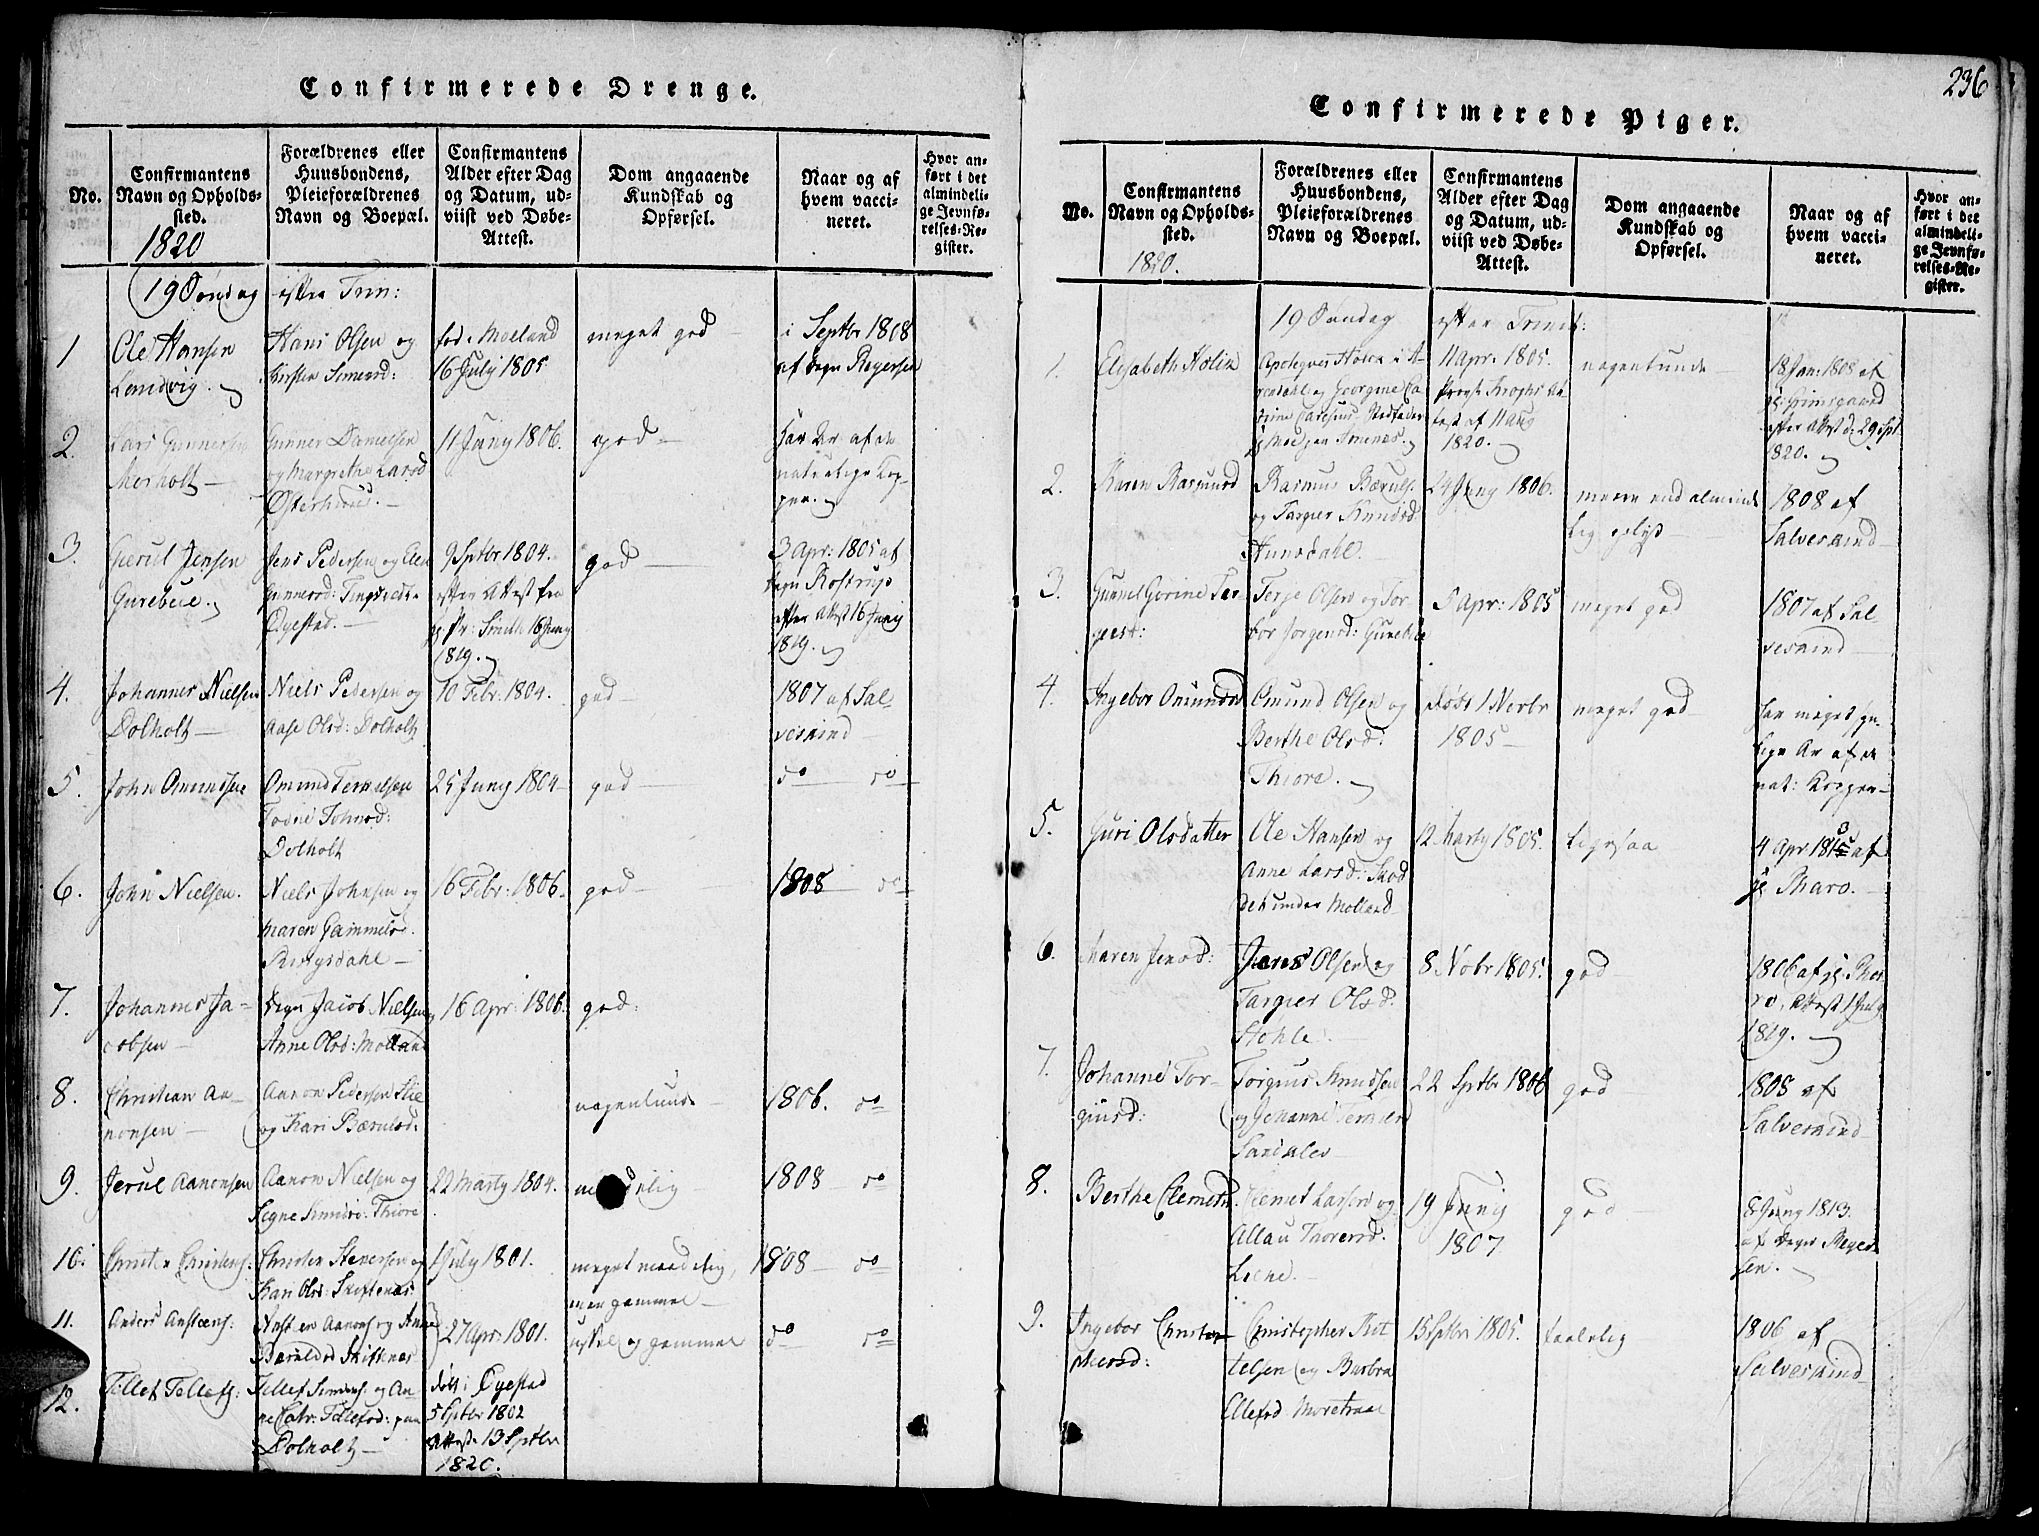 236
Confirmerede Drenge.
No.
Confirmantens
Navn og Opholds-
sted.
1820
Forældrenes eller
Huusbondens,
Pleieforældrenes
Navn og Boepæl.
Confirmantens
Alder efter Dag
og Datum, ud-
viist ved Døbe-
Attest.
Dom angaaende
Kundskab og
Opførsel.
Naar og af
hvem vacci-
neret.
Hvor an-
ført i det
almindeli-
ge Jevnfø-
relses-Re-
gister.
19 Søndag efter Trin:
1
Ole Hansen
Landvig
Hans Olsen og
Kirsten Simensd:
fød i Moeland
16 July 1805
meget god
i Septbr 1808
af Degn Rogersen
2.
Lars Gunnersen
Morholt
Gunner Danielsen
og Margrethe Larsd
Østerhuus.
11 Juny 1806.
god
har Ar af de
naturlige Kop-
per.
3.
Gierul Jensen
Gurebeie
Jens Pedersen og Elen
Gunnersd: Tingstveit
Øyestad.
9 Sptbr 1804.
efter Attest fra
Hr: Pr: Smith 16 Juny
1819.
god
3 Apr: 1805 af
Degn Rostrup
efter Attest 16 Juny
1819.
4.
Johannes Nielsen
Dolholt
Niels Pedersen og
Aase Olsd: Dolholt
10 Febr: 1804.
god
1807 af Sal-
vesaind
5.
John Omundsen
Omund Terkielsen
Johnsd:
Dolholt
25 Juny 1804
god
do do
6.
John Nielsen.
Niels Johnsen og
Maren Gammelsd.
Ringsdahl
16 Febr: 1806.
god
1808 do
7.
Johannes Ja-
cobsen
Degn Jacob Nielsen
Anne Olsd: Molland
16 Apr: 1806.
god:
8.
Christian Aa-
nonsen
Aanon Pedersen Slie
og Kari Bærulsd.
nogenlunde
1806. do
9.
Jerul Aanonsen
Aanon Nielsen og
Segne Simensd: Thiore
22 Marty 1804.
1808 do
10.
Christen Christens:
Christen Stenersen og
Kari Olsd: Skiftenæs
1 July 1801.
meget maadelig,
men gammel
1808 do
11.
Anders Anstens:
Ansten Aanons: og Anne
Bærulsd Skiftenæs
27 Apr: 1801.
uskel og gammel
do do
12.
Tellef Tellefs:
Tellef Simens: og An-
ne Catr: Tellefsd: paa
Dolholt
døbt i Øyestad
5 Sptbr 1802
Attest 13 Sptbr
1820.
Confirmerede Piger.
No.
Confirmantens
Navn og Opholds-
sted.
1820.
Forældrenes eller
Huusbondens,
Pleieforældrenes
Navn og Boepæl.
Confirmantens
Alder efter Dag
og Datum, ud-
viist ved Døbe-
Attest.
Dom angaaende
Kundskab og
Opførsel.
Naar og af
hvem vacci-
neret.
Hvor an-
ført i det
almindeli-
ge Jevnfø-
relses-Re-
gister.
19 Søndag efter Trinit:
1.
Elisabeth Holm
11 Apr: 1805.
1820.
nogenlunde
18 Jan: 1808 af
Hr: Grimsgaard
efter Attest d: 29 Spt
1820.
2.
Karen Rasmusd
Rasmus Bæruls.
og Targier Knudsd:
Hunsdahl.
24 Juny 1806.
meere end alminde
lig oplyst
1808 af
Salvesaind
3.
Gunnel Gorine Ter-
gesd:
Terje Olsen og Tor-
bor Jorgensd: Gurebeie
5 Apr: 1805
meget god
1807 af Sal-
vesaind
4.
Ingebor Omundsd
Omund Olsen og
Berthe Olsd:
Thiore.
døbt 1 Novbr
1805
meget god
har meget syn-
lige Ar af de
nat: Kopper
5.
Guri Olsdatter
Ole Hansen og
Anne Larsd:
under Molland
12 Marty 1805.
ligesaa
4 Apr af
Hr Pharo.
6.
Maren Jensd:
Jens Olsen og
Targier Olsd.
Stohle.
8 Nobr 1805.
god
1806 af Hr. Pha-
ro, Attest 1 July
1819.
7.
Johanne Tor-
giusd:
Torgius Knudsen
og Johanne
22 Sptbr 1806
god
1808 af
Salvesaind
8.
Berthe Clemetsd.
Clemet Larsen og
Allau Thorersd.
Liene.
19 Juny
1807
god
8 Juny 1813.
af Degn Røger-
sen.
9.
Ingebor Christo-
phersd:
Christopher Ket
telsen og Barbra
Ellefsd Moretraae
15 Sptbr 1805.
taalelig
1806 af
Salvesaind